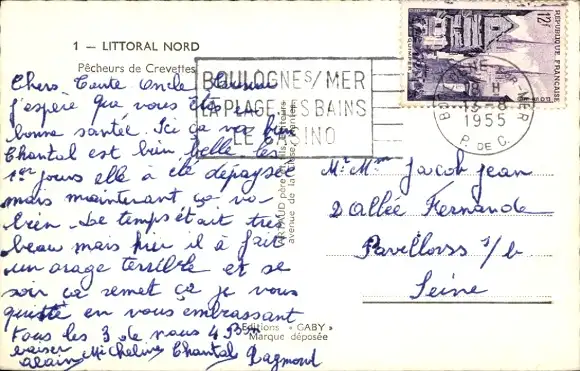 1 — LITTORAL NORD
Pêcheurs de Crevettes
BOULOGNE S/ MER
LA PLAGE LES BAINS
LE CASINO
12F
REPUBLIQUE FRANÇAISE
QUIMPER
BOULOGNE SUR MER
18 H
13-8
1955
P. DE C.
Chers Tante Oncle
j'espère que vous êtes en
bonne santée. Ici ça va bien
Chantal est bien belle les
1er jours elle a été dépaysée
mais maintenant ça va
bien. Le temps était très
beau mais hier il à fait
un orage terrible et se
soir ça remet ça je vous
quitte en vous embrassant
tous les 3 de nous 4 Bon
baiser
Alain Micheline Chantal Raymond
Mr Mme Jacob Jean
2 Allée Fernande
Pavillons s/b
Seine
avenue de la
Editions « GABY »
Marque déposée